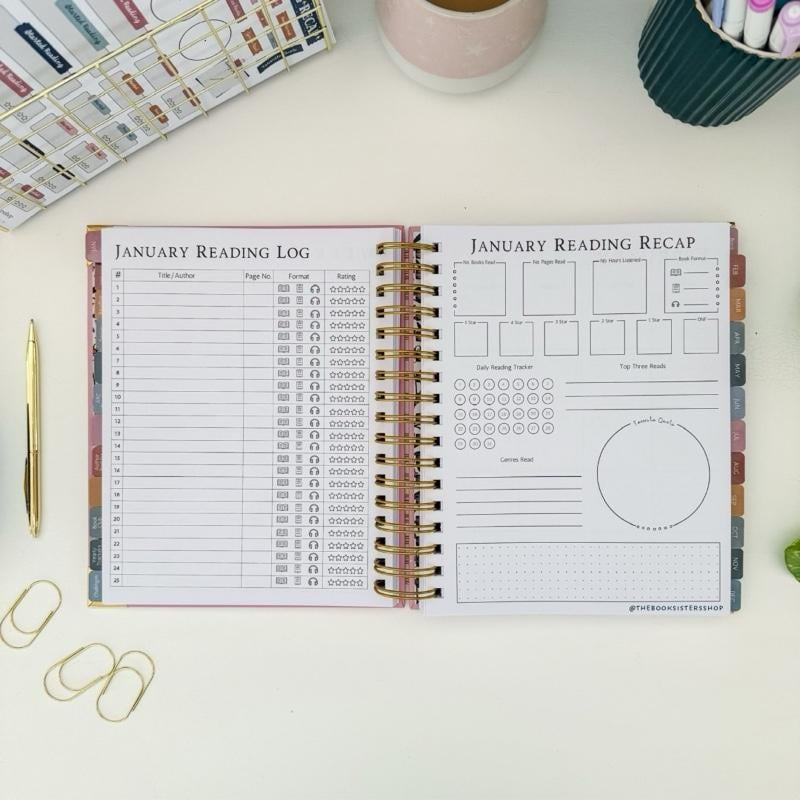 Started Reading
Started Reading
JANUARY READING LOG
# Title/Author Page No. Format Rating
1
2
3
4
5
6
7
8
9
10
11
12
13
14
15
16
17
18
19
20
21
22
23
24
25
JANUARY READING RECAP
No. Books Read No. Pages Read No. Hours Listened Book Format
5 Star 4 Star 3 Star 2 Star 1 Star DNF
Daily Reading Tracker Top Three Reads
1 2 3 4 5 6 7
8 9 10 11 12 13 14
15 16 17 18 19 20 21
22 23 24 25 26 27 28
29 30 31
Favorite Quote
Genres Read
@THEBOOKSISTERSSHOP
FEB
MAR
APR
MAY
JUN
JUL
AUG
SEP
OCT
NOV
DEC
Challenges